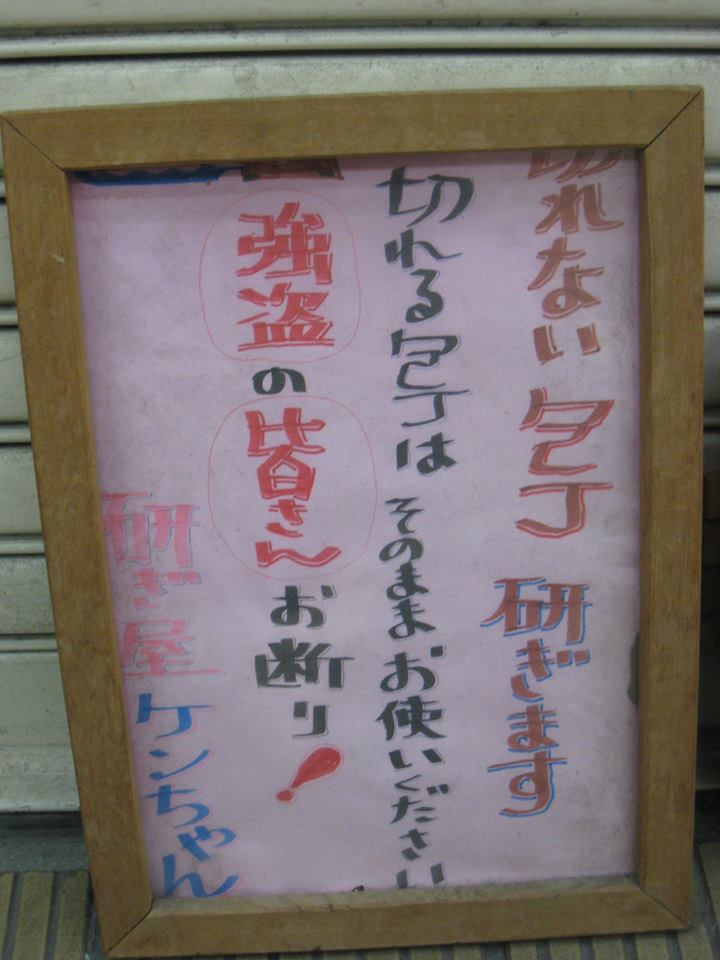 切れない包丁 研ぎます
切れる包丁は そのままお使いください
強盗の皆さんお断り!
研ぎ屋 ケンちゃん